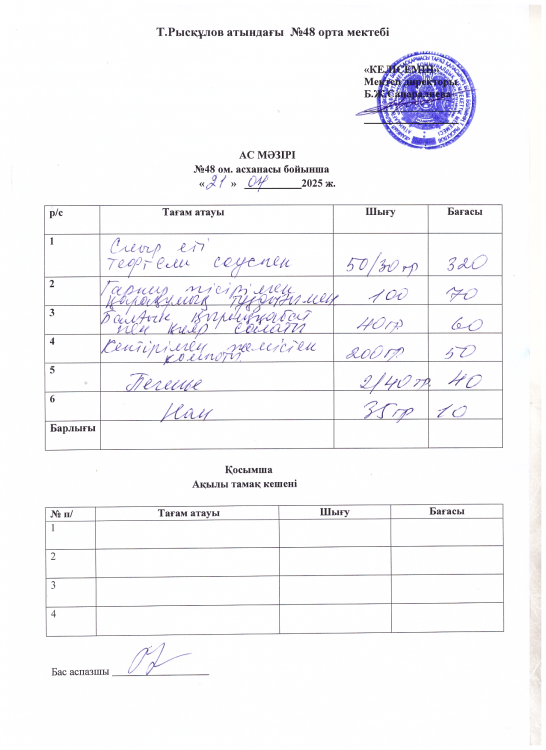 Т.Рысқұлов атындағы №48 орта мектебі
«КЕЛІСЕМІН»
Мектеп директоры
Б.Ж.Сапаралиева
АС МӘЗІРІ
№48 ом. асханасы бойынша
« 21 » 04 2025 ж.
р/с Тағам атауы Шығу Бағасы
1 Сиыр еті
тефтели соуспен 50/30 гр 320
2 Гарнир пісірілген
қарақұмық 100 70
3 Балғын қырыққабат
пен қияр салаты 40 гр 60
4 Кептірілген жемістен
компот 200 гр 50
5 Печенье 2/40 гр. 40
6 Нан 35 гр 10
Барлығы
Қосымша
Ақылы тамақ кешені
№ п/ Тағам атауы Шығу Бағасы
1
2
3
4
Бас аспазшы